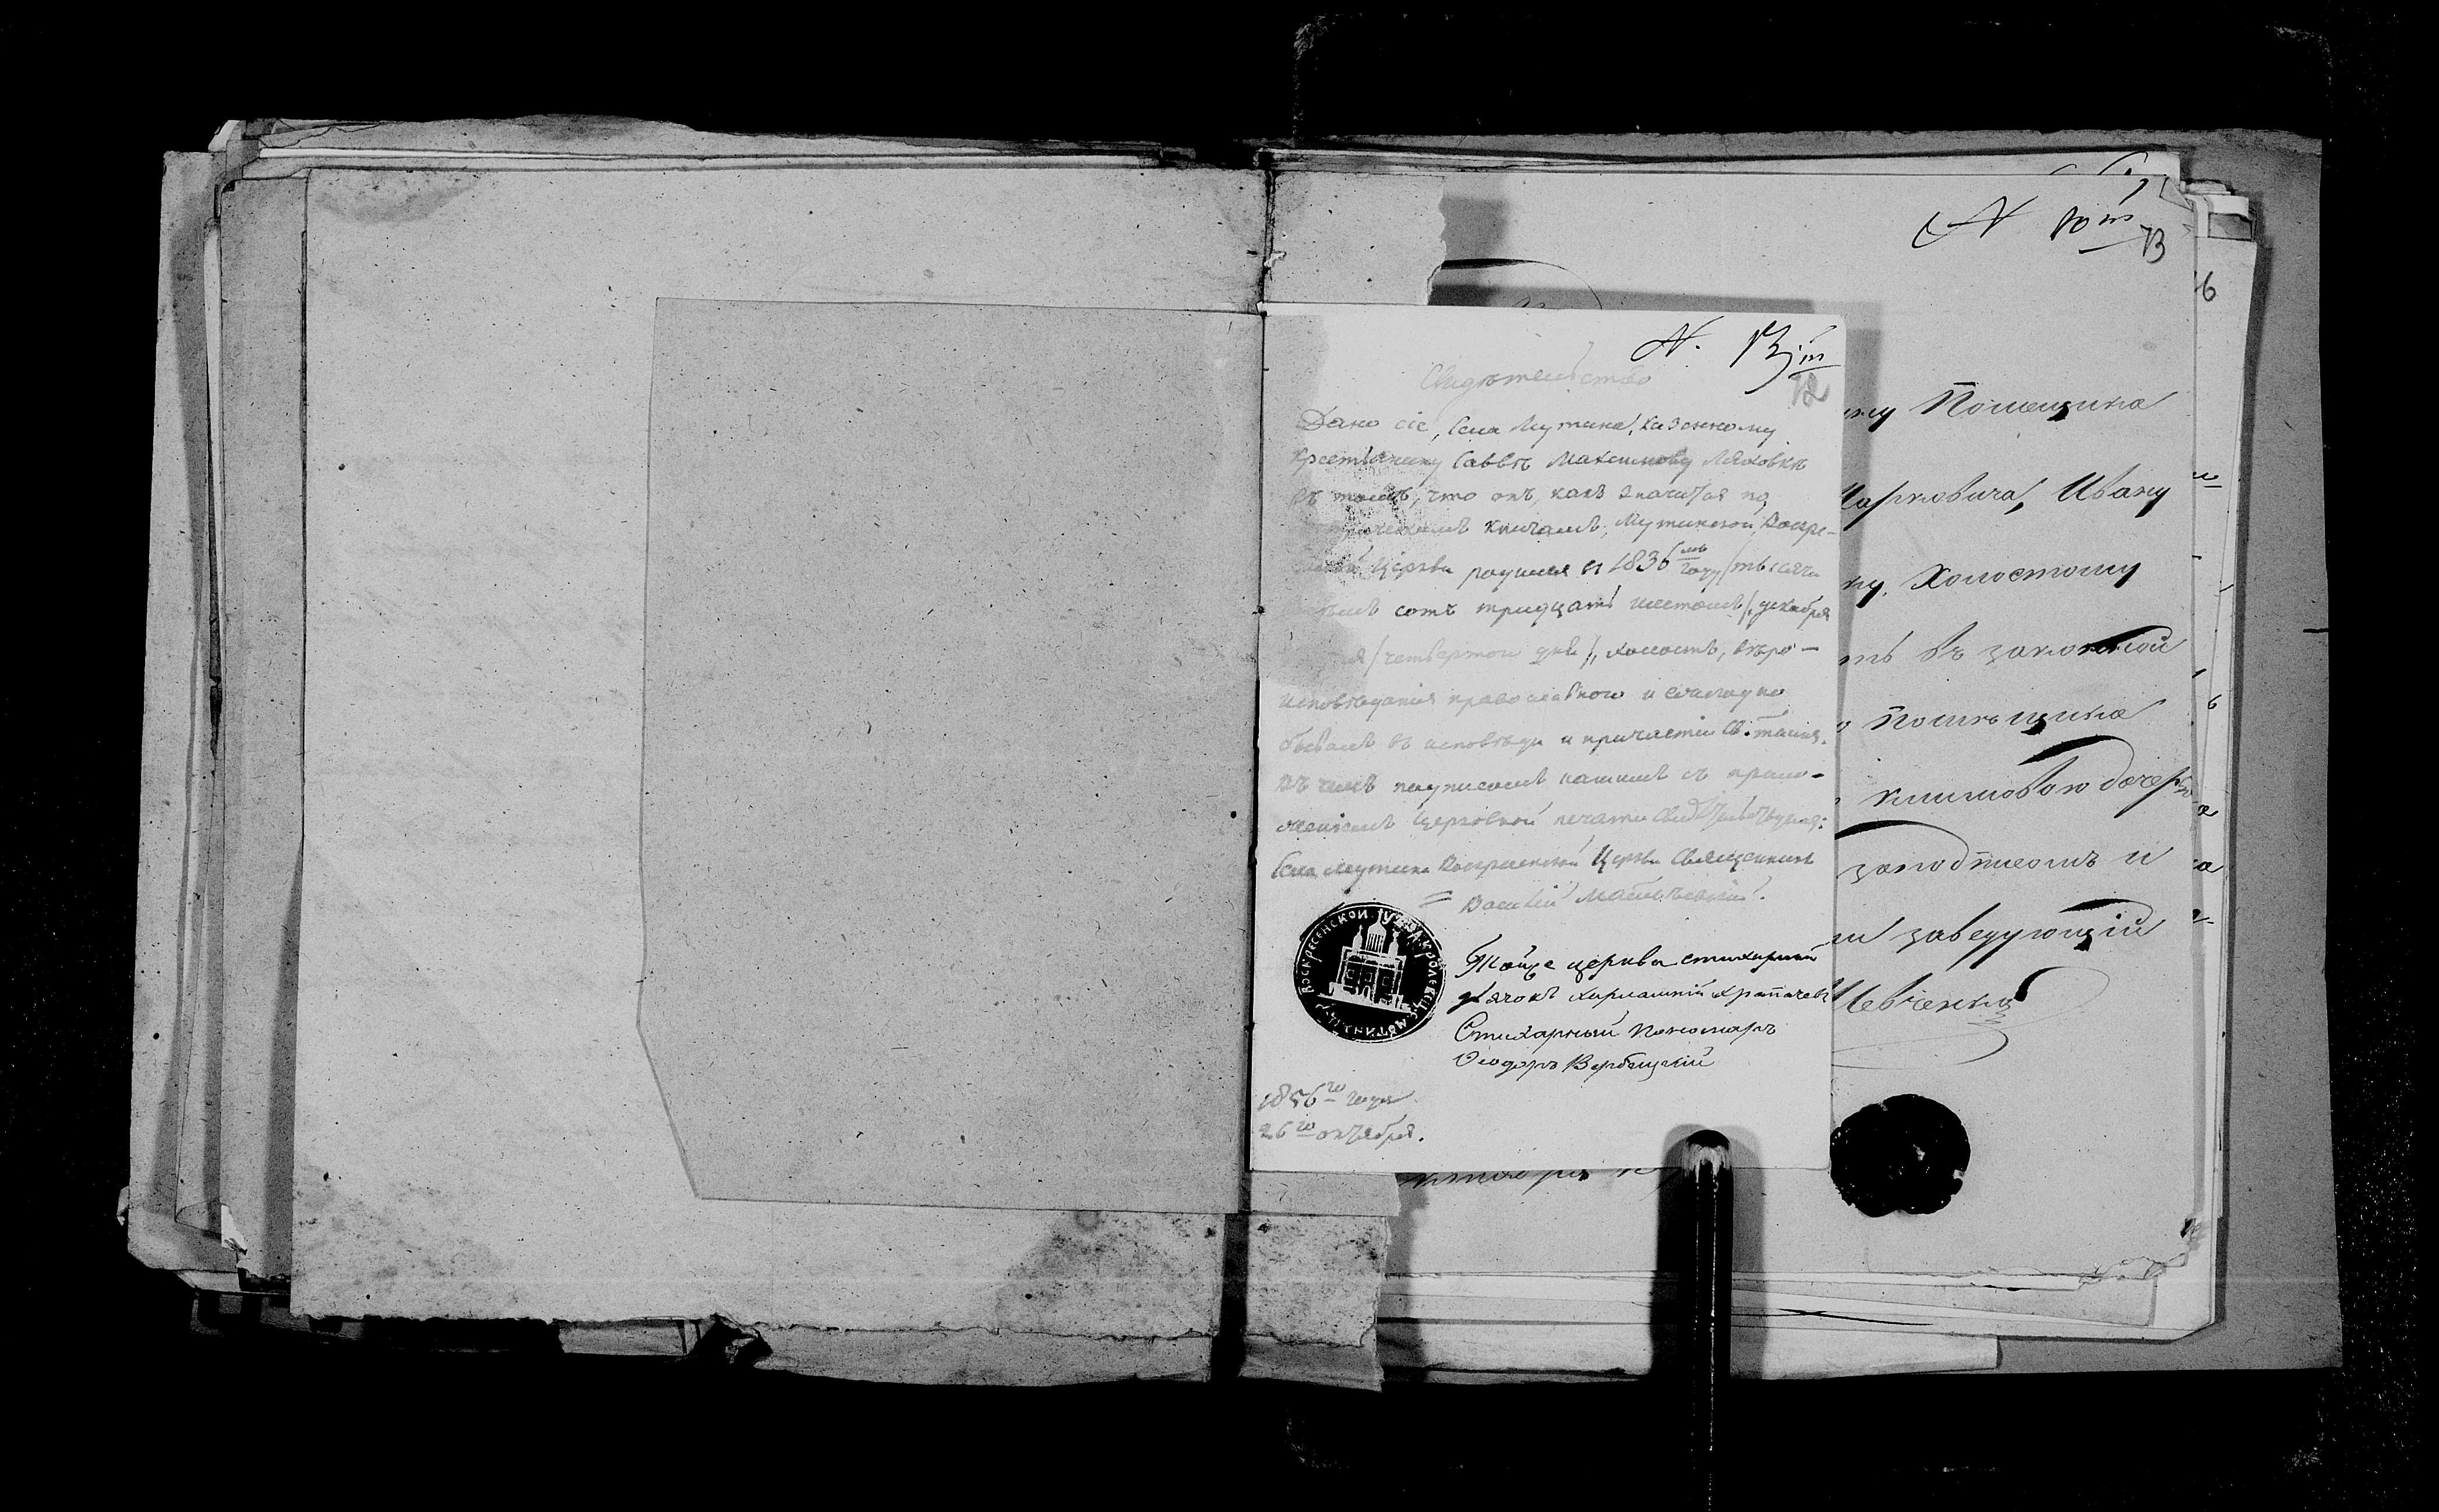 N. 13й
72
Свидѣтельство
Дано сіе, Села Мутина, казенному
крестьянину Саввѣ Максимову Ляховкѣ
въ томъ, что онъ, какъ значится по
книгамъ, Мутинской Воскре-
Церкви родился въ 1836мъ году /тысяча
сотъ тридцать шестомъ/, декабря
/четвертого дня/, холостъ, вѣро-
исповѣданія православного и ежегодно
бываетъ въ исповѣди и причастіи Св. таинъ.
Въ чемъ подписомъ нашимъ съ прило-
женіемъ Церковной печати Свидѣтельствуемъ:
Села Мутина Воскресенской Церкви Священникъ
Василій
Тойже церкви стихарный
дьячокъ
Стихарный Пономарь
Ѳеодоръ Вербицкій
1856го года
26го октября.
ВОСКРЕСЕНСКОЙ
N 10й
73
6
Помещика
Марковича, Ивану
Холостому
въ законной
Помѣщика
Климовою дочерью
заподписомъ и
заведующій
Шевченко